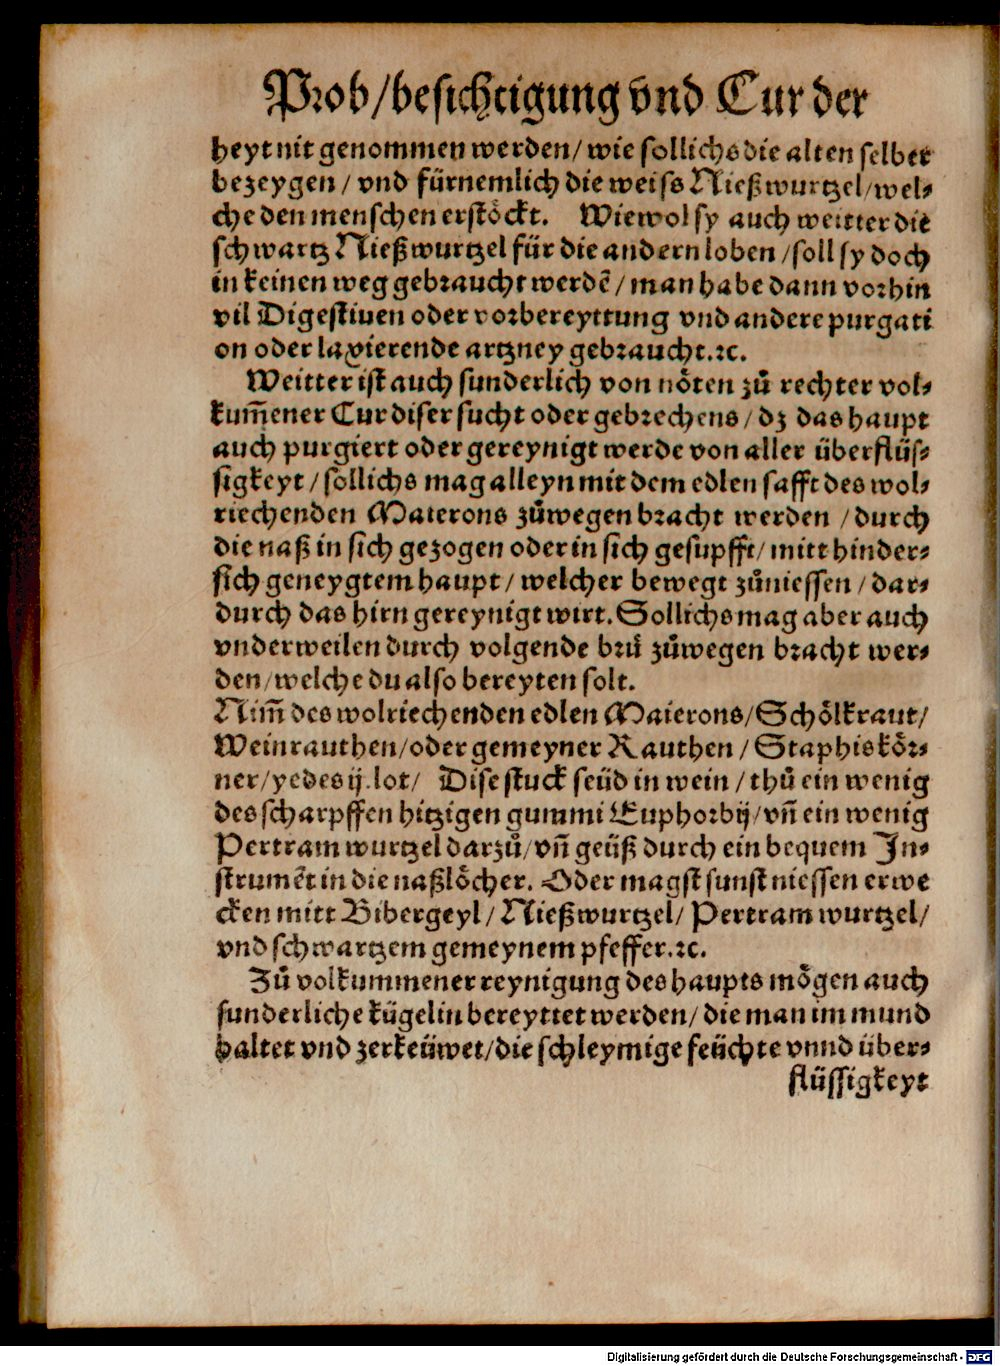 Prob/besichtigung vnd Cur der
heyt nit genommen werden/ wie sollichs die alten selber
bezeygen / vnd fürnemlich die weiss Nießwurtzel/wel⸗
che den menschen erstöckt. Wiewol sy auch weitter die
schwartz Nießwurtzel für die andern loben /soll sy doch
in keinen weg gebraucht werdē / man habe dann vorhin
vil Digestiuen oder vorbereyttung vnd andere purgati
on oder laxierende artzney gebraucht.ꝛc.
Weitter ist auch sunderlich von nöten zů rechter vol⸗
kum̃ener Cur diser sucht oder gebrechens / dz das haupt
auch purgiert oder gereynigt werde von aller überflüs⸗
sigkeyt / sollichs mag alleyn mit dem edlen safft des wol⸗
riechenden Maierons zůwegen bracht werden / durch
die naß in sich gezogen oder in sich gesupfft/ mitt hinder⸗
sich geneygtem haupt / welcher bewegt zůniessen / dar⸗
durch das hirn gereynigt wirt. Sollichs mag aber auch
vnderweilen durch volgende brů zůwegen bracht wer⸗
den/welche du also bereyten solt.
Nim̃ des wolriechenden edlen Maierons/ Schölkraut/
Weinrauthen/oder gemeyner Rauthen / Staphiskör⸗
ner/yedes ij.lot/ Dise stuck seüd in wein / thů ein wenig
des scharpffen hitzigen gummi Euphorbij/vñ ein wenig
Pertram wurtzel darzů/vñ geüß durch ein bequem In⸗
strumēt in die naßlöcher. Oder magst sunst niessen erwe
cken mitt Bibergeyl / Nießwurtzel/ Pertram wurtzel/
vnd schwartzem gemeynem pfeffer.ꝛc.
Zů volkummener reynigung des haupts mögen auch
sunderliche kügelin bereyttet werden/ die man im mund
haltet vnd zerkeüwet/die schleymige feüchte vnnd über⸗
flüssigkeyt
Digitalisierung gefördert durch die Deutsche Forschungsgemeinschaft - DFG